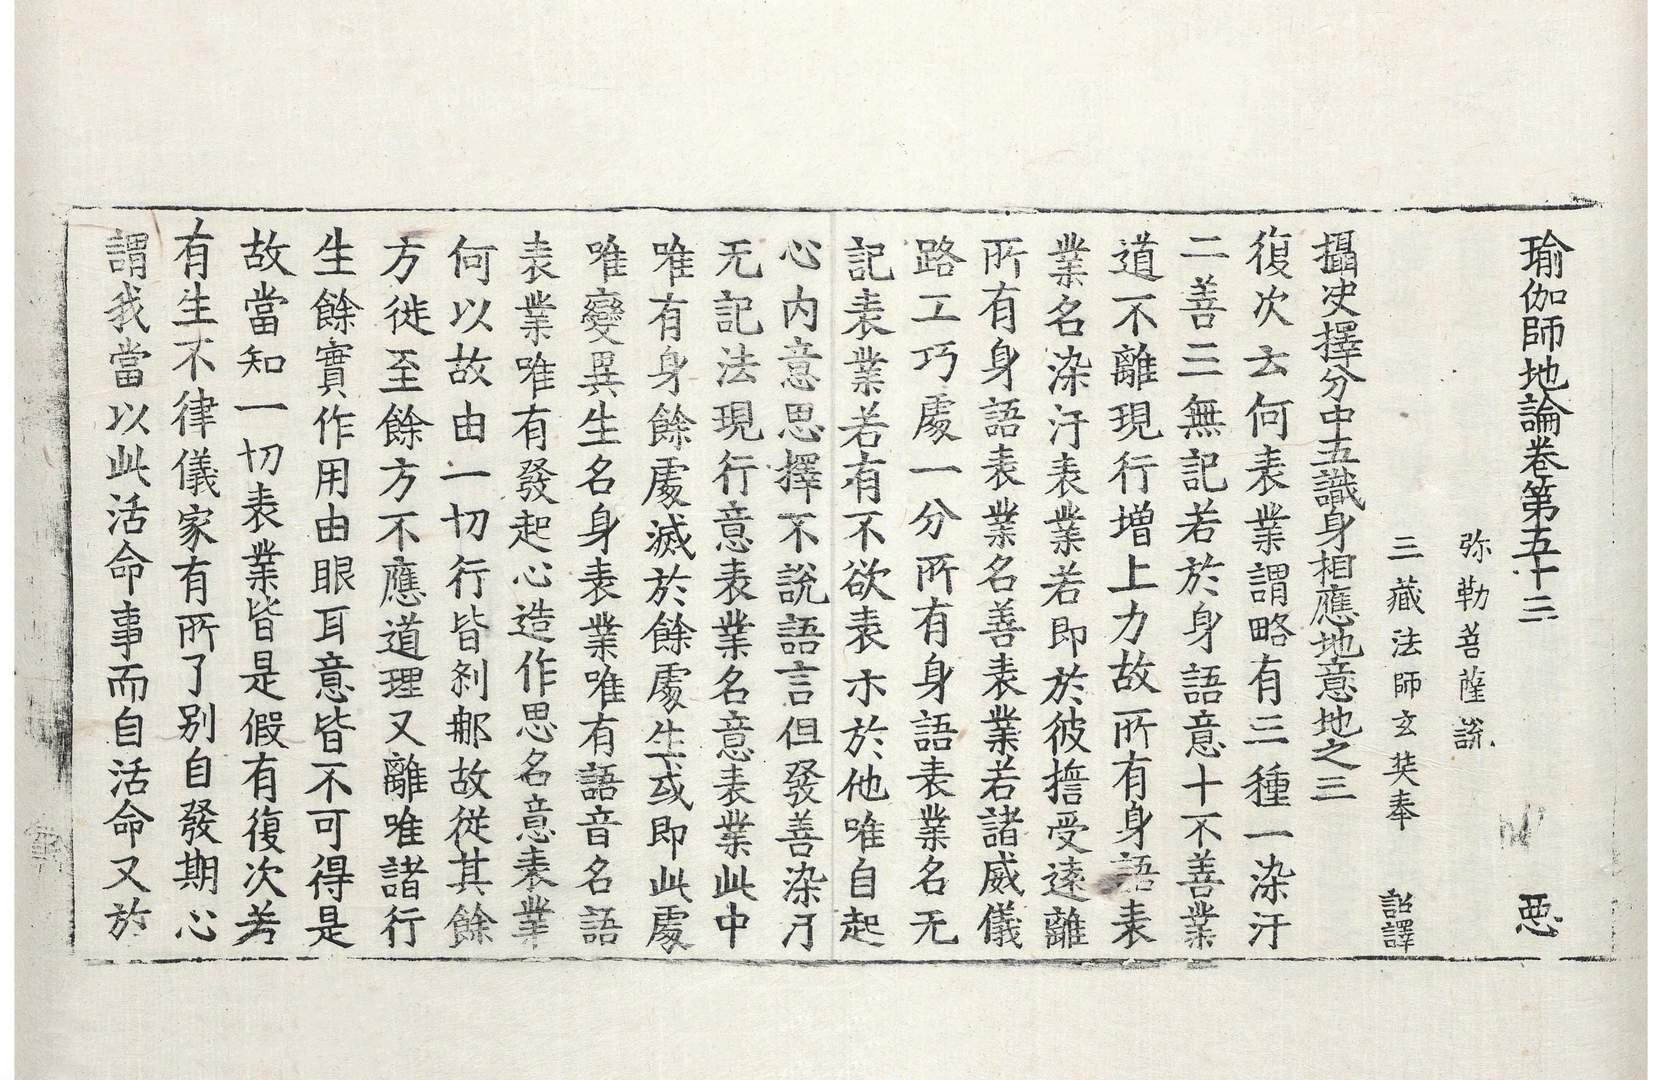 瑜伽師地論卷第五十三 惡
弥勒菩薩說
三藏法師玄奘奉 詔譯
攝決擇分中五識身相應地意地之三
復次云何表業謂略有三種一染汙
二善三無記若於身語意十不善業
道不離現行增上力故所有身語表
業名染汙表業若即於彼誓受遠離
所有身語表業名善表業若諸威儀
路工巧處一分所有身語表業名无
記表業若有不欲表示於他唯自起
心內意思擇不說語言但發善染汙
无記法現行意表業名意表業此中
唯有身餘處滅於餘處生或即此處
唯變異生名身表業唯有語音名語
表業唯有發起心造作思名意表業
何以故由一切行皆剎那故從其餘
方徙至餘方不應道理又離唯諸行
生餘實作用由眼耳意皆不可得是
故當知一切表業皆是假有復次若
有生不律儀家有所了別自發期心
謂我當以此活命事而自活命又於